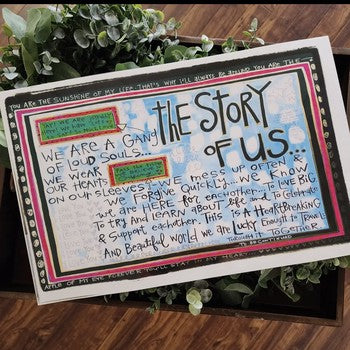 YOU ARE THE SUNSHINE OF MY LIFE. THAT'S WHY I'LL ALWAYS BE AROUND YOU ARE THE
THE STORY
OF US...
WE ARE A GANG
OF LOUD SOULS...
WE WEAR
OUR HEARTS
ON OUR SLEEVES. WE MESS UP OFTEN &
WE FORGIVE QUICKLY... WE KNOW
WE ARE HERE FOR EACHOTHER... TO LIVE BIG
TO TRY AND LEARN ABOUT LIFE and TO CELEBRATE
& SUPPORT EACHOTHER. THIS IS A HEARTBREAKING
AND BEAUTIFUL WORLD WE ARE LUCKY ENOUGH TO TRAVEL
THROUGH IT TOGETHER
TO BE CONTINUED
APPLE OF MY EYE FOREVER YOU'LL STAY IN MY HEART